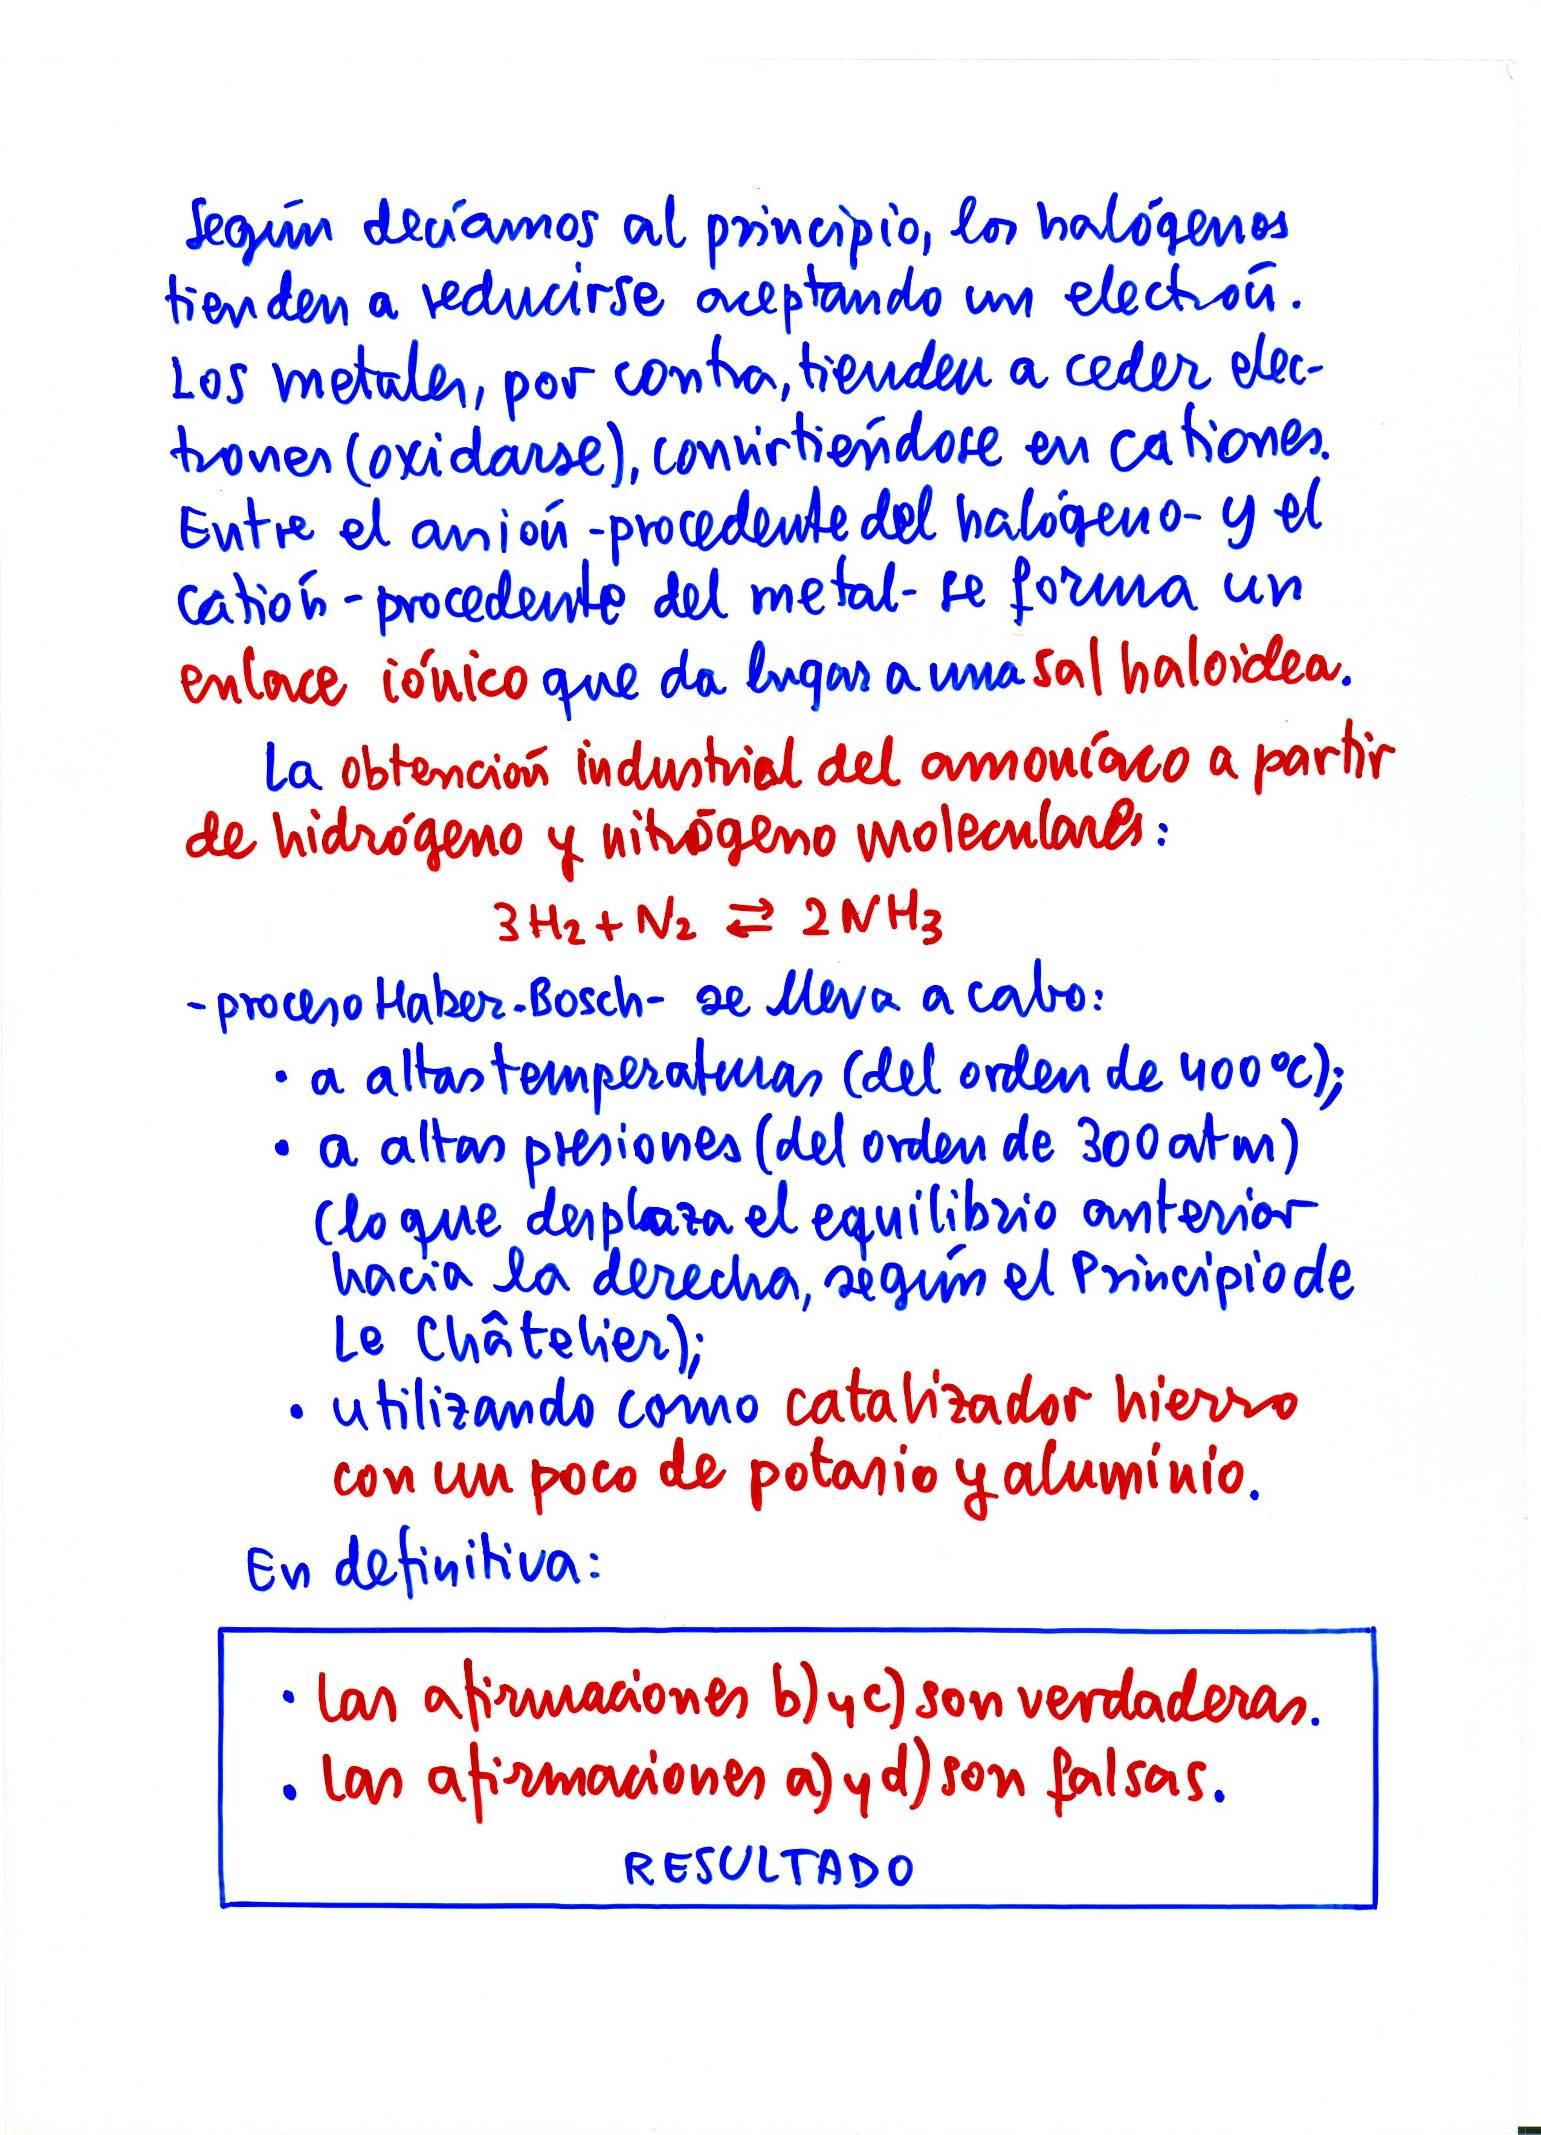 Según decíamos al principio, los halógenos
tienden a reducirse aceptando un electrón.
Los metales, por contra, tienden a ceder elec-
trones (oxidarse), convirtiéndose en cationes.
Entre el anión -procedente del halógeno- y el
catión - procedente del metal- se forma un
enlace iónico que da lugar a una sal haloidea.
La obtención industrial del amoníaco a partir
de hidrógeno y nitrógeno moleculares:
3H₂ + N₂ ⇄ 2NH₃
-proceso Haber-Bosch- se lleva a cabo:
• a altas temperaturas (del orden de 400 ºC);
• a altas presiones (del orden de 300 atm)
(lo que desplaza el equilibrio anterior
hacia la derecha, según el Principio de
Le Châtelier);
• utilizando como catalizador hierro
con un poco de potasio y aluminio.
En definitiva:
• Las afirmaciones b) y c) son verdaderas.
• Las afirmaciones a) y d) son falsas.
RESULTADO